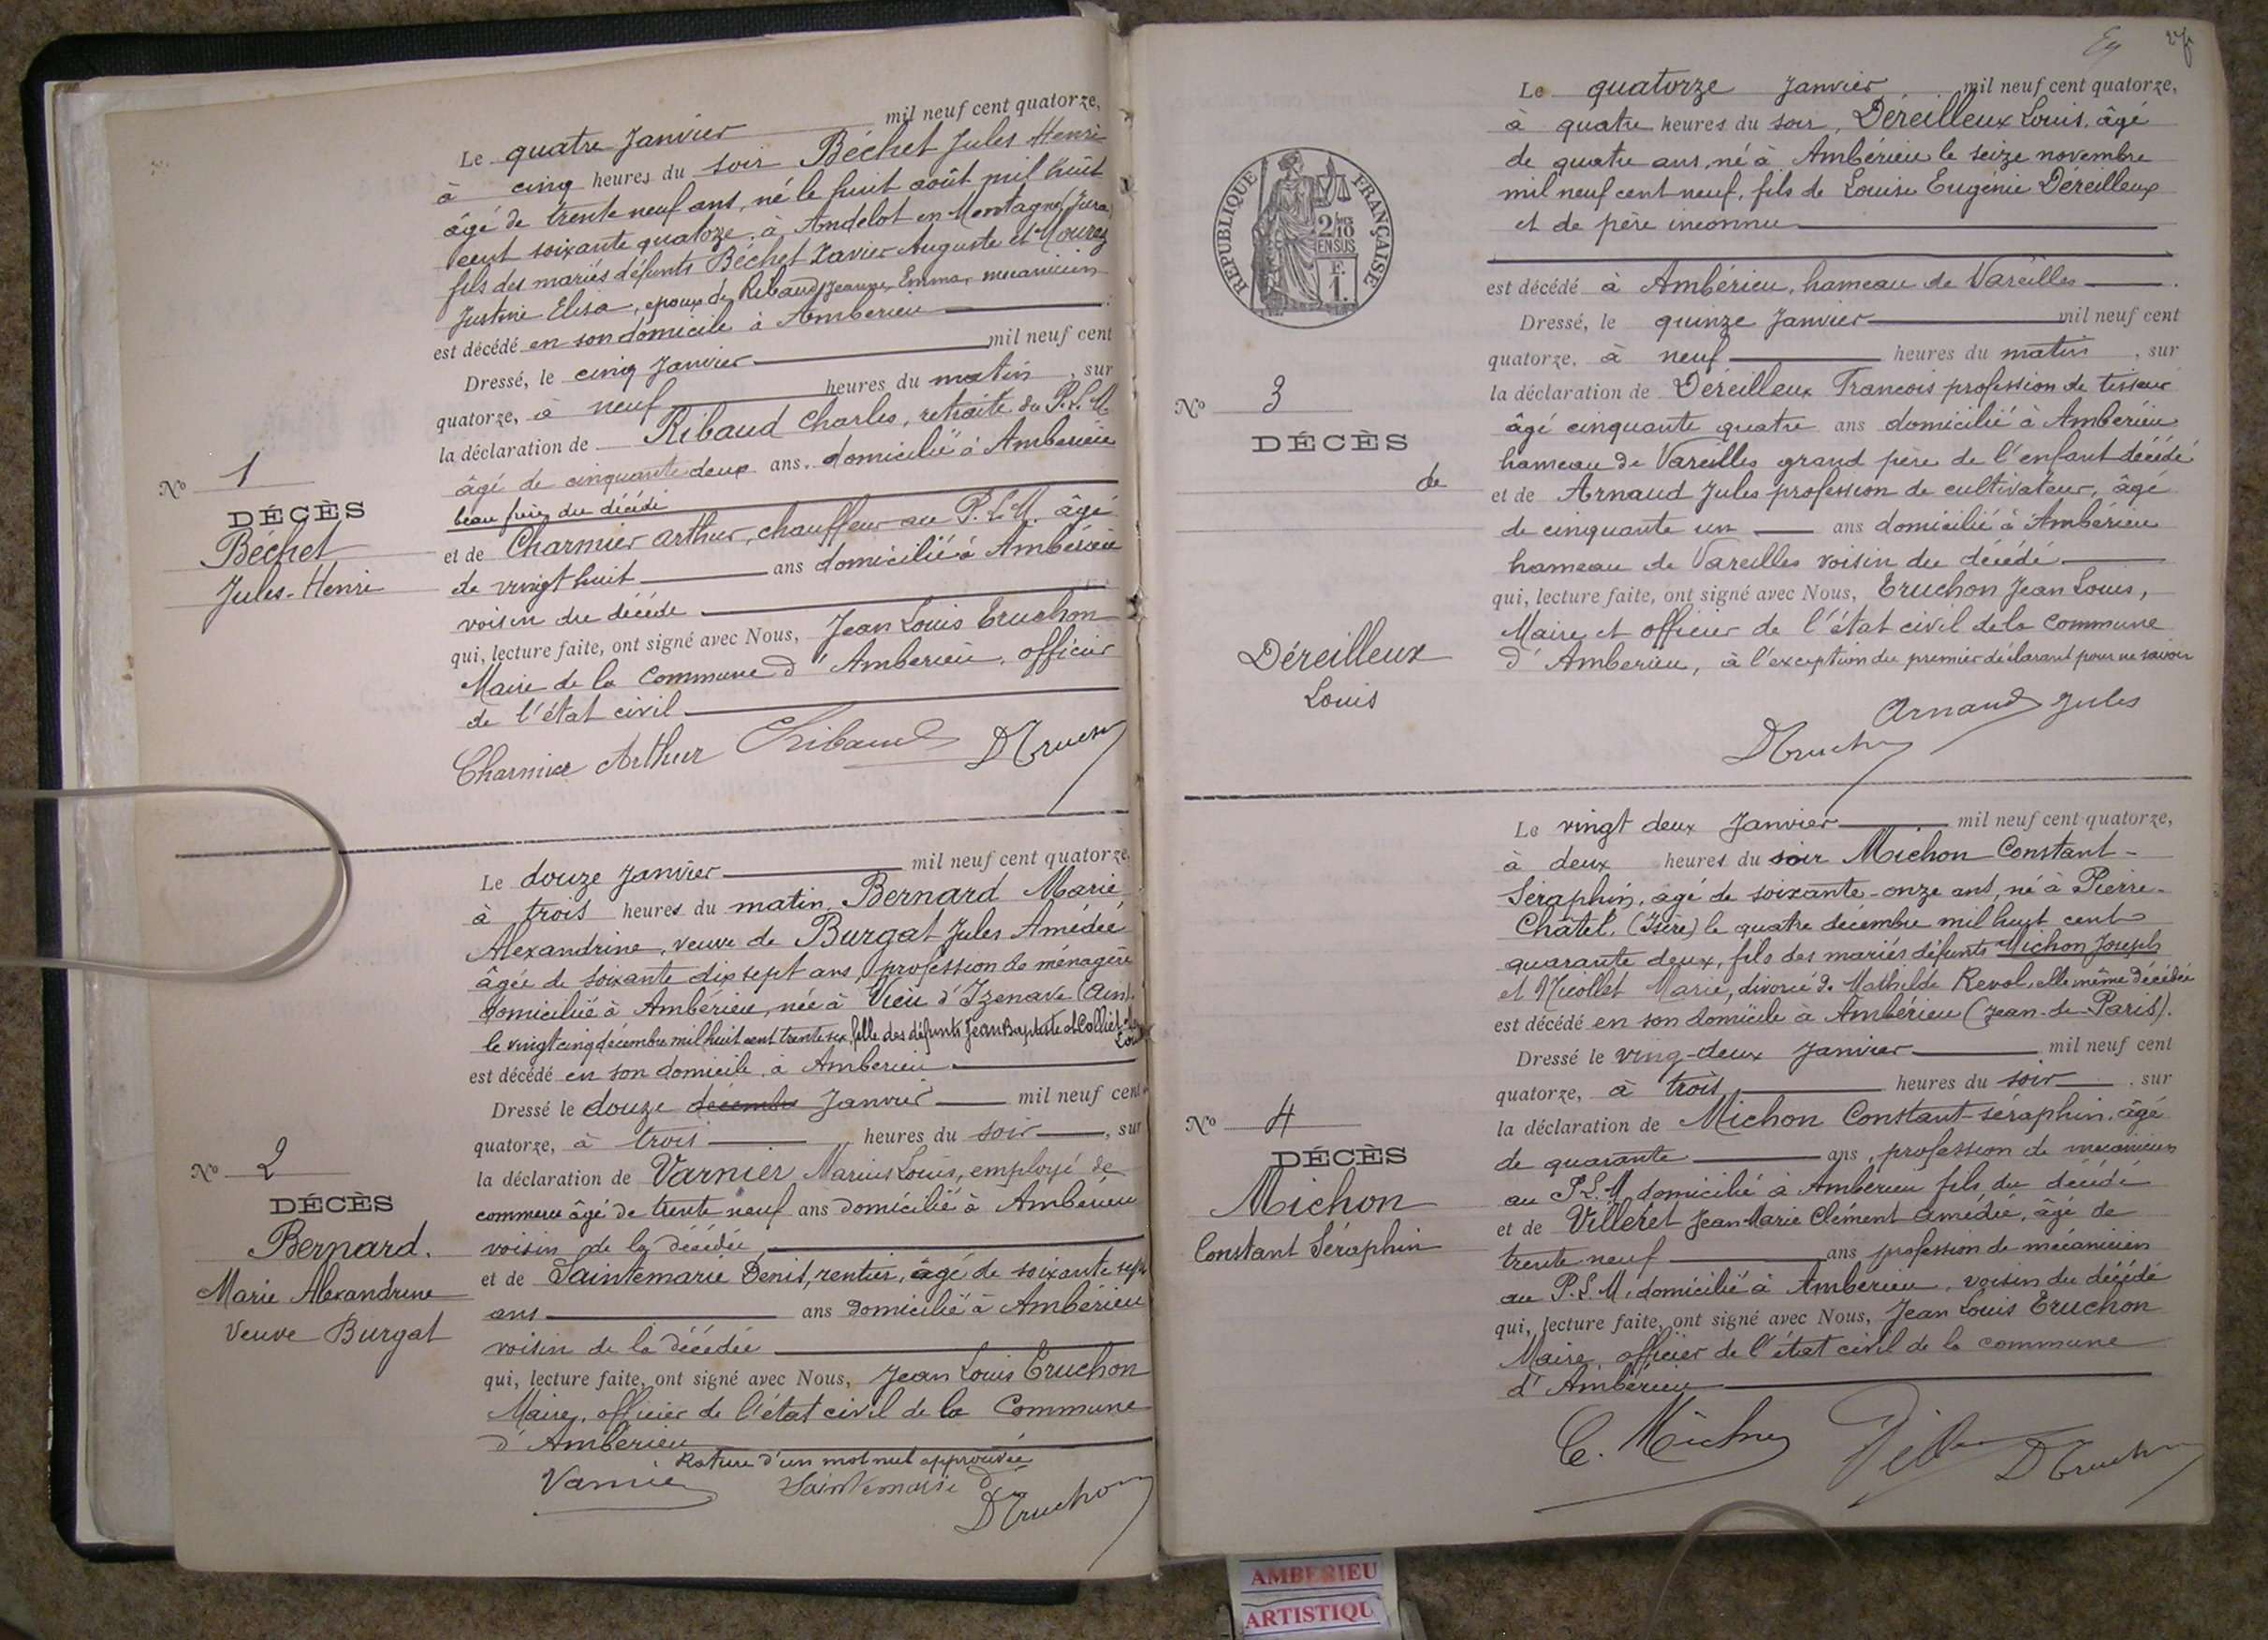 Le quatre Janvier mil neuf cent quatorze,
à cinq heures du soir Béchet Jules Henri
âgé de trente neuf ans, né le huit août mil huit
cent soixante quatoze, à Andelot en Montagne (Jura)
fils des mariés défunts Béchet Xavier Auguste et Mourey
Justine Elisa, epoux de Ribaud Jeanne, Emma, mecanicien
est décédé en son domicile à Amberieu
Dressé, le cinq Janvier mil neuf cent
quatorze, à neuf heures du matin, sur
la déclaration de Ribaud Charles, retraité du P.L.M
âgé de cinquante deux ans. domicilié à Amberieu
beau frère du décédé
et de Charmier Arthur, chauffeur au P.L.M. âgé
de vingt huit ans domicilié à Ambérieu
voisin du décédé
qui, lecture faite, ont signé avec Nous, Jean Louis Truchon
Maire de la Commune d'Amberieu, officier
de l'état civil
Charmier Arthur CRibaud DTruchon
No 1
DÉCÈS
Béchet
Jules-Henri
Le douze Janvier mil neuf cent quatorze,
à trois heures du matin, Bernard Marie
Alexandrine, veuve de Burgat Jules Amédée
âgée de soixante dix sept ans, profession de ménagère
domiciliée à Ambérieu, née à Vieu d'Izenave (Ain).
le vingt cinq décembre mil huit cent trente six, fille des défunts Jean Baptiste et Colliet
est décédé en son domicile à Amberieu
Dressé le douze décembre Janvier mil neuf cent
quatorze, à trois heures du soir, sur
la déclaration de Varnier Marius Louis, employé de
commerce âgé de trente neuf ans domicilié à Ambérieu
voisin de la décédée
et de Saintemarie Denis, rentier, âgé de soixante sept
ans ans domicilié à Ambérieu
voisin de la décédée
qui, lecture faite, ont signé avec Nous, Jean Louis Truchon
Maire, officier de l'état civil de la Commune
d'Amberieu
Rature d'un mot nul approuvée
Varnier Saintemarie d DTruchon
No 2
DÉCÈS
Bernard.
Marie Alexandrine
Veuve Burgat
Le quatorze Janvier mil neuf cent quatorze,
à quatre heures du soir, Déreilleux Louis, âgé
de quatre ans, né à Ambérieu le seize novembre
mil neuf cent neuf, fils de Louise Eugénie Déreilleux
et de père inconnu
est décédé à Ambérieu, hameau de Vareilles
Dressé, le quinze Janvier mil neuf cent
quatorze, à neuf heures du matin, sur
la déclaration de Déreilleux Francois profession de tisseur
âgé cinquante quatre ans domicilié à Ambérieu
hameau de Vareilles grand père de l'enfant décédé
et de Arnaud Jules profession de cultivateur, âgé
de cinquante un ans domicilié à Ambérieu
hameau de Vareilles voisin du décédé
qui, lecture faite, ont signé avec Nous, Truchon Jean Louis,
Maire et officier de l'état civil de la commune
d'Amberieu, à l'exception du premier déclarant pour ne savoir
Arnaud Jules
DTruchon
RÉPUBLIQUE FRANÇAISE
2/10
EN SUS
F.
1.
No 3
DÉCÈS
de
Déreilleux
Louis
Le vingt deux Janvier mil neuf cent quatorze,
à deux heures du soir Michon Constant-
Séraphin, âgé de soixante-onze ans, né à Pierre-
Châtel, (Isère) le quatre décembre mil huit cent
quarante deux, fils des mariés défunts Michon Joseph
et Nicollet Marie, divorcé de Mathilde Revol, elle même décédée
est décédé en son domicile à Ambérieu (Jean-de-Paris).
Dressé le ving-deux Janvier mil neuf cent
quatorze, à trois heures du soir, sur
la déclaration de Michon Constant-séraphin, âgé
de quarante ans, profession de mecanicien
au P.L.M domicilié à Amberieu fils du décédé
et de Villeret Jean Marie Clément Amédée, âgé de
trente neuf ans profession de mécanicien
au P.L.M. domicilié à Amberieu, voisin du décédé
qui, lecture faite, ont signé avec Nous, Jean Louis Truchon
Maire, officier de l'état civil de la commune
d'Ambérieu
C. Michon DTruchon
No 4
DÉCÈS
Michon
Constant Séraphin
AMBERIEU
ARTISTIQU